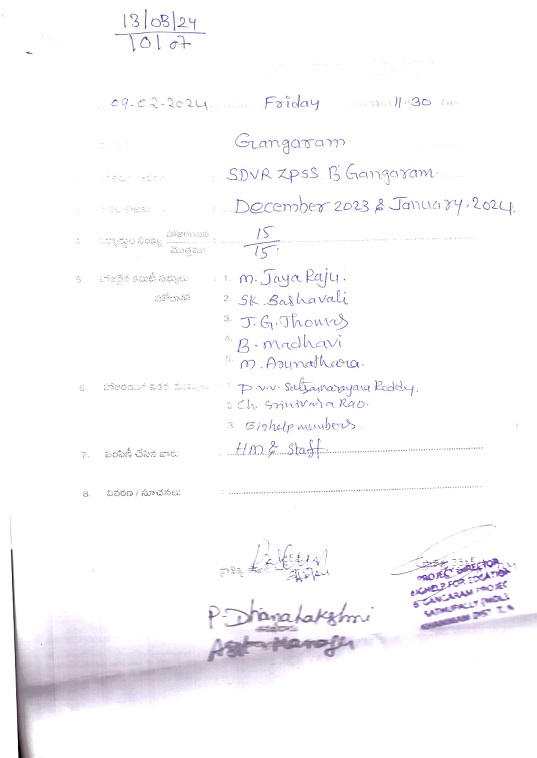 13/03/24
10/07
09-02-2024 Friday 11-30
Gangaram
SDVR ZPSS B' Gangaram
December 2023 & January. 2024.
4. విద్యార్థుల సంఖ్య హాజరయిన 15
మొత్తము 15.
5. హాజరైన కమిటీ సభ్యులు : 1. M. Jaya Raju.
2. SK. Bashavali
3. J. G. Thomas
4. B. Madhavi
5. M. Arunathara.
6. హాజరయిన ఇతర : 1. P.V.V. Satyanarayana Reddy.
2. Ch. Srinivara Rao.
3. Bighelp members.
7. పంపిణీ చేసిన వారు : HM & Staff
8. వివరణ / సూచనలు :
PROJECT DIRECTOR
BIGHELP FOR EDUCATION
B GANGARAM PROJEC
SATHUPALLY (MDL)
KHAMMAM DIST T.S
P. Dhanalakshmi